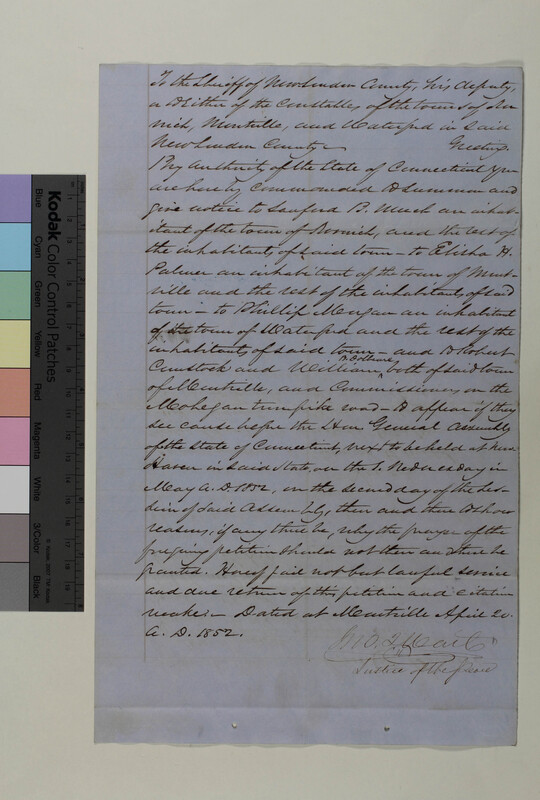 To the Sheriff of New London County, his deputy,
or Either of the Constables of the towns of Nor
wich, Montville, and Waterford in said
New London County Greeting.
By authority of the State of Connecticut you
are hereby Commanded to Summon and
give notice to Sanford B. Meech an inhab-
itant of the town of Norwich, and the rest of
the inhabitants of said town – to Elisha H.
Palmer an inhabitant of the town of Mont-
ville and the rest of the inhabitants of said
town – to Phillip Morgan an inhabitant
of the town of Waterford and the rest of the
inhabitants of said town – and to Robert
Comstock and William, both of said town
of Montville, and Commissioners, on the
Mohegan turnpike road – to appear if they
see cause before the Hon General Assembly
of the State of Connecticut, next to be held at New
Haven in said State, on the 1. Wednesday in
May A. D. 1852, on the second day of the ses-
sion of said Assembly, then and there to show
reasons, if any there be, why the prayer of the
foregoing petition should not then and there be
granted. Hereof fail not but lawful service
and due return of this petition and citation
make. – Dated at Montville April 20.
A. D. 1852.
Justice of the Peace
Kodak Color Control Patches
Blue
Cyan
Green
Yellow
Red
Magenta
White
3/Color
Black